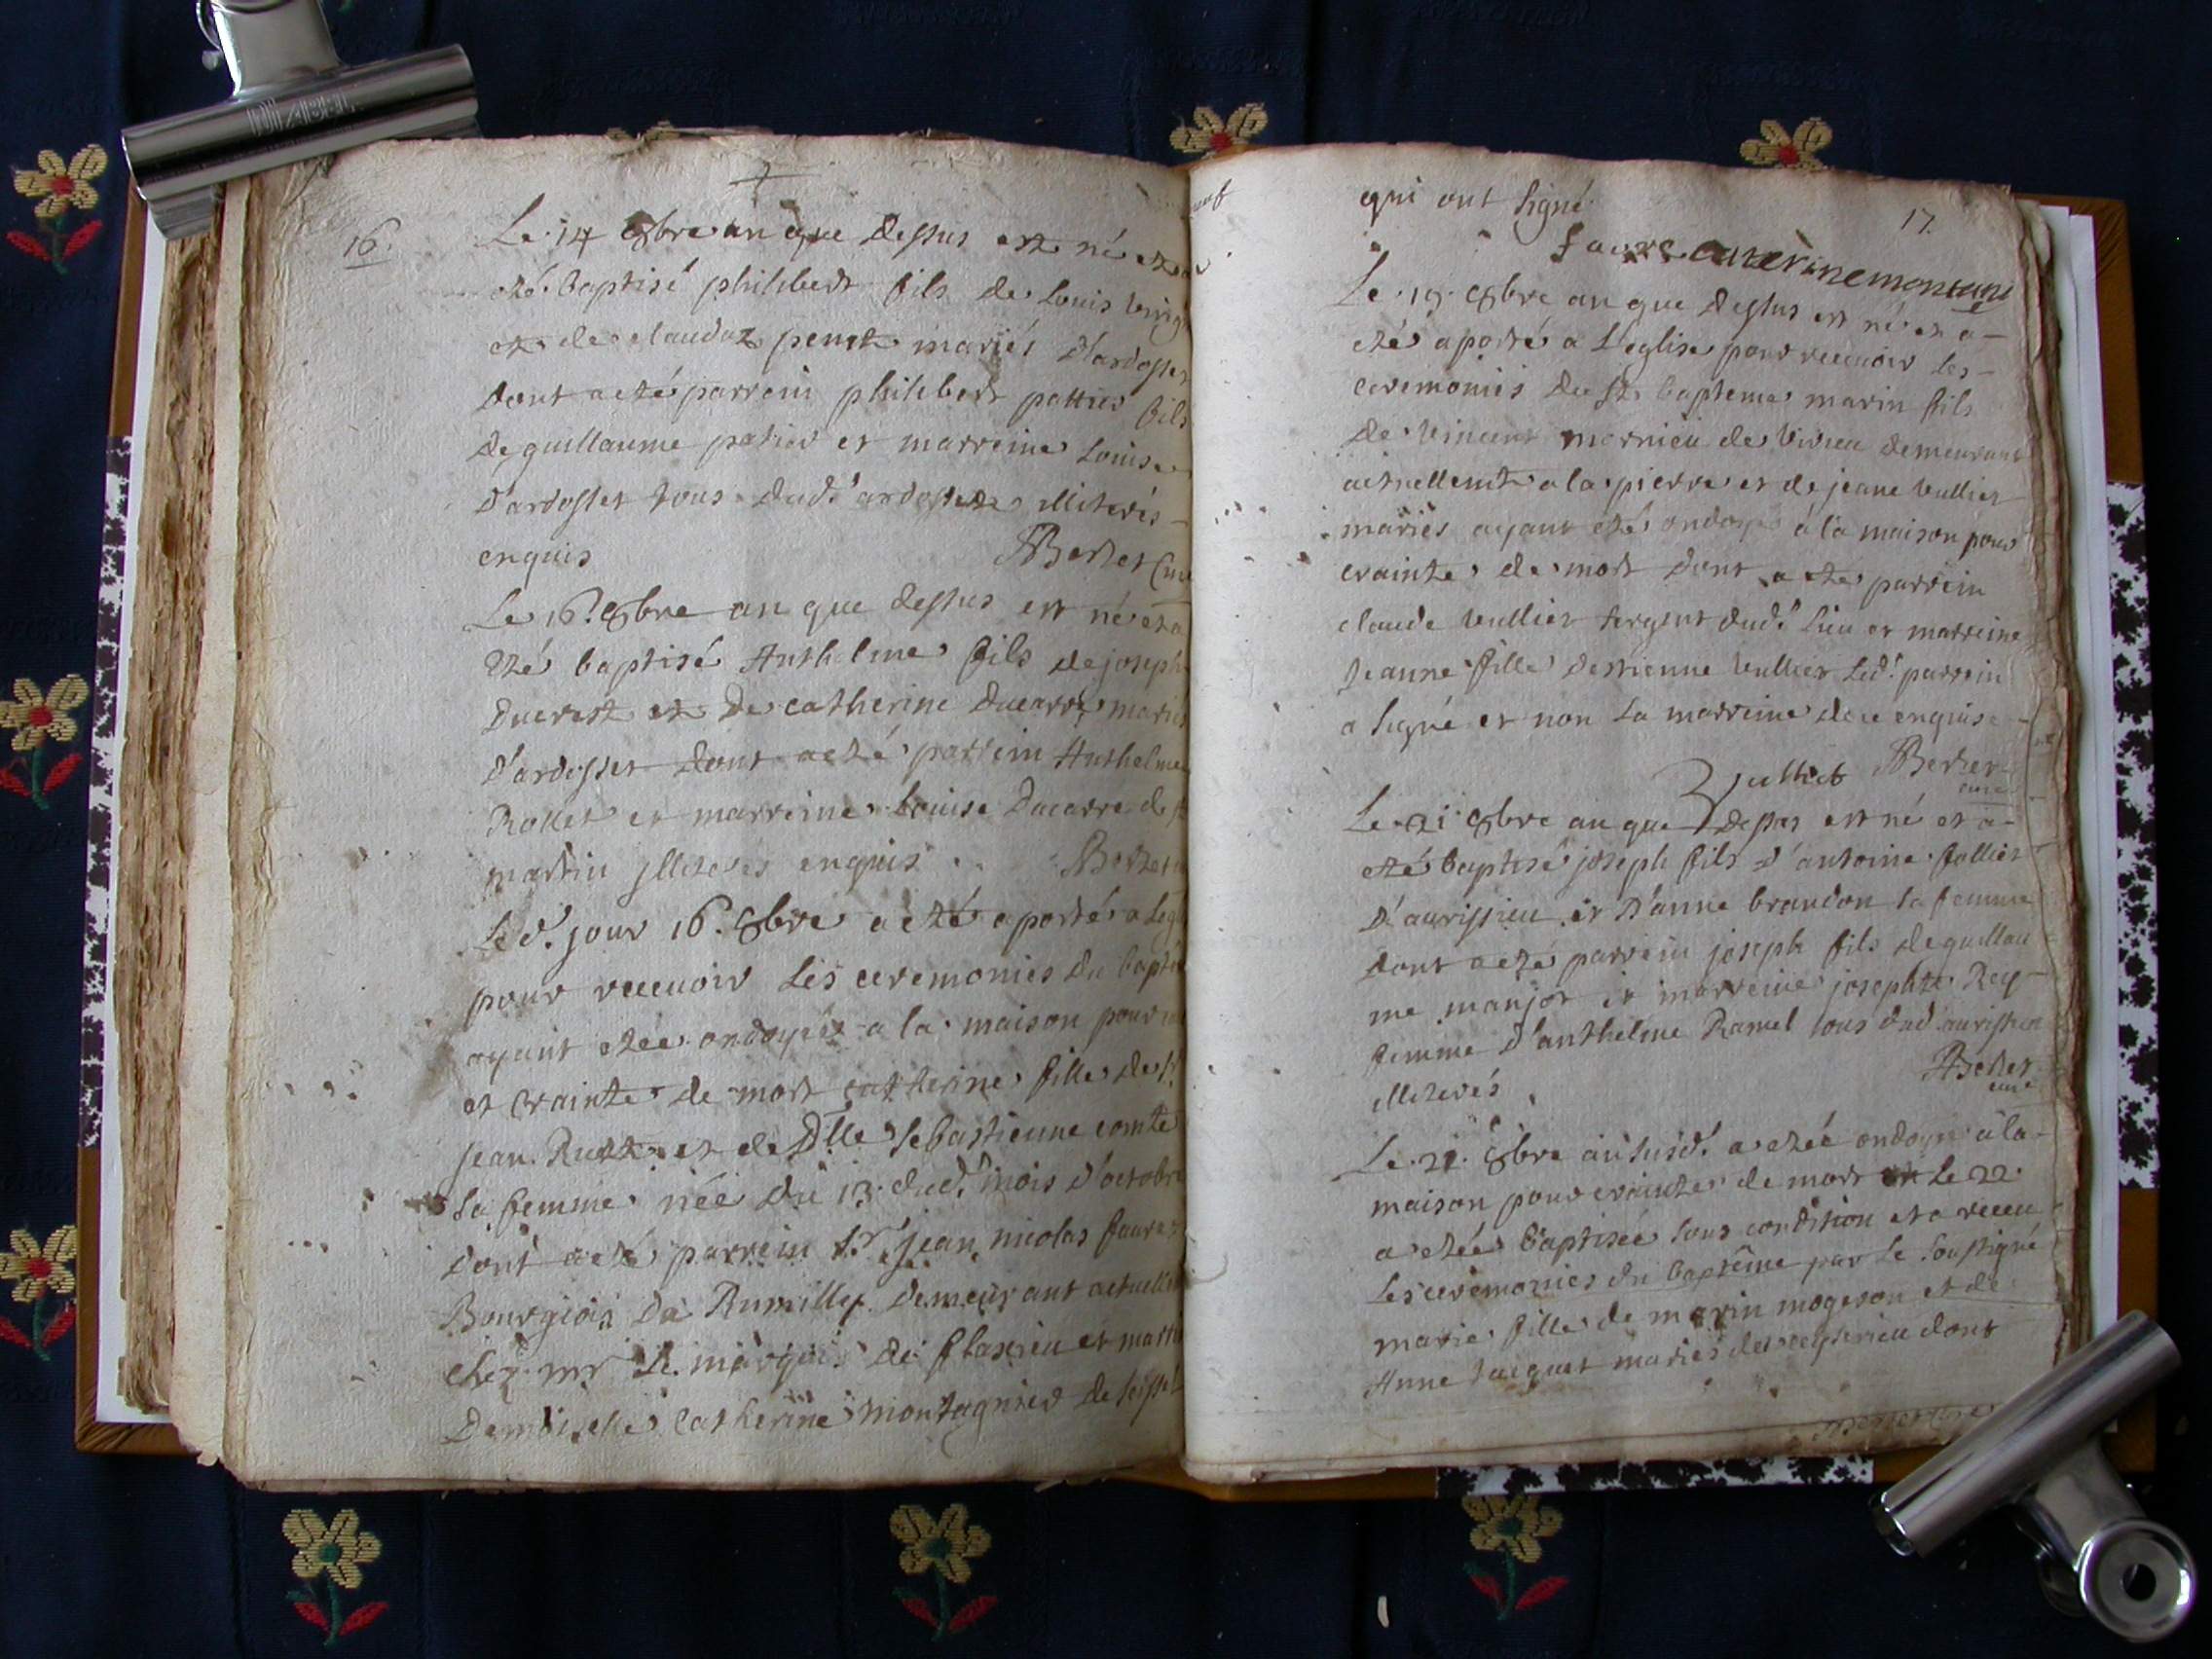 16.
Le 14 8bre an que dessus est né et a
eté baptisé philibert fils de Louis
et de claudaz penet mariés D'ardosset
dont a eté parrein philibert pattier fils
de guillaume patier et marreine Louise
D'ardosset tous dud. ardosset illiterés
enquis Berlet Curé
Le 16. 8bre an que dessus est né et a
Eté baptisé Anthelme fils de joseph
Ducrest et De catherine Ducarre mariés
D'ardosset dont a eté parrein Anthelme
Rollet et marreine Louise Ducarre de St
martin jlliterés enquis Berlet
Led. jour 16. 8bre a eté aporté a
pour recevoir Les ceremonies du
ayant etée ondoyée a la maison pour
et Crainte de mort catherine fille de Sr
jean et de Dlle Sebastienne comte
Sa femme née du 13. dud. mois d'octobre
dont a eté parrein Sr jean nicolas faure
Bourgiois De Rumilly Demeurant
chez mr Le marquis de flaxieu et
Demoiselle Catherine montagnier de
17.
qui ont signé
faure caterine
Le 19. 8bre an que dessus est né et a
eté aporté a L'eglise pour recevoir les
ceremonies du St bapteme marin fils
de Vincent mornieu de Virieu demeurant
actuellemt a la pierre et de jeane Vulliet
mariés ayant eté ondoyé a la maison pour
crainte de mort dont a ete parrein
claude Vulliet sergent dud. lieu et marreine
jeanne fille destienne Vulliet Led. parrein
a signé et non La marreine de ce enquise
Vulliet Berlet
curé
Le 21 8bre an que dessus est né et a
eté baptisé joseph fils d'antoine follliet
D'aurissieu et D'anne brandon sa femme
dont a eté parrein joseph fils de guillau
me manjot et marreine josephte Rey
femme d'anthelme Ramel tous dud. aurissieu
illiterés Berlet
curé
Le 21. 8bre an susd. a etée ondoyée a la
maison pour crainte de mort Le 22
a etée baptisée sous condition et a receu
Les ceremonies du baptême par le soussigné
marie fille de marin mogeson et de
Anne jacquet mariés de dont